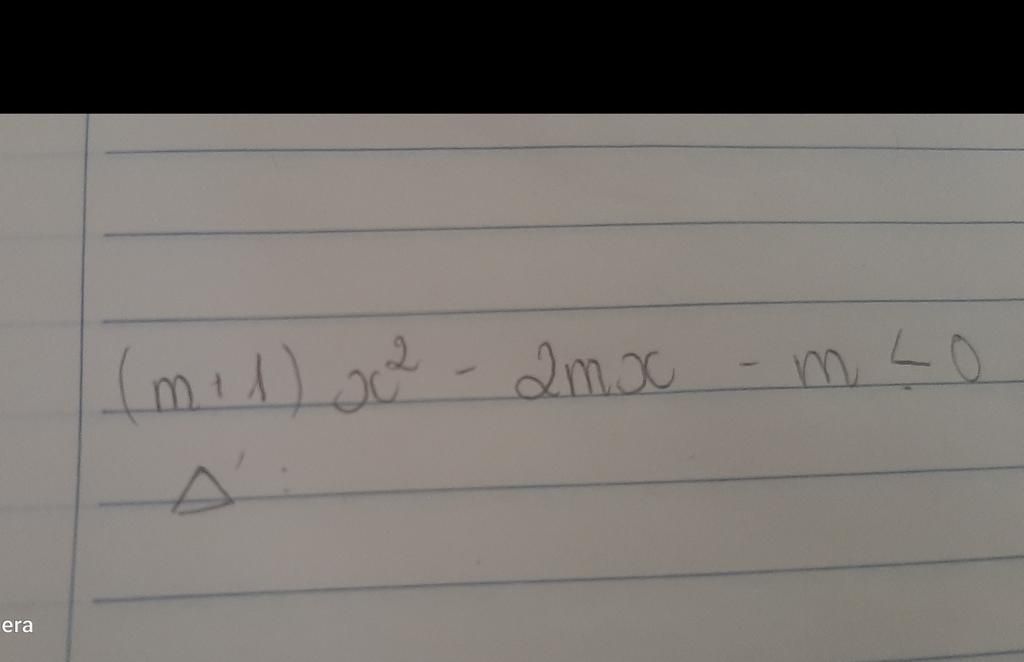 (m+1)x² - 2mx - m ≤ 0
Δ' :
era